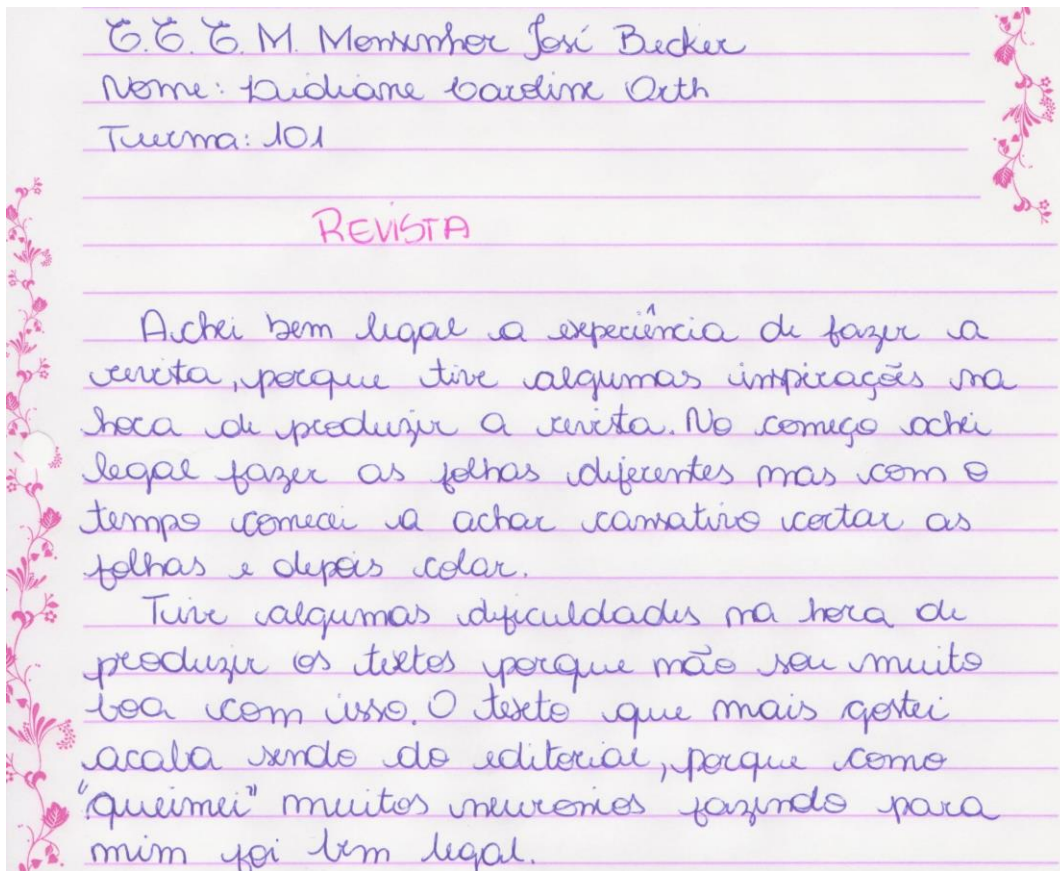 E.E.E.M. Monsenhor José Becker
Nome: Lidiane Caroline Orth
Turma: 101
REVISTA
Achei bem legal a experiência de fazer a
revista, porque tive algumas inspirações na
hora de produzir a revista. No começo achei
legal fazer as folhas diferentes mas com o
tempo comecei a achar cansativo cortar as
folhas e depois colar.
Tive algumas dificuldades na hora de
produzir os textos porque não sou muito
boa com isso. O texto que mais gostei
acaba sendo do editorial, porque como
"queimei" muitos neuronios fazendo para
mim foi bem legal.